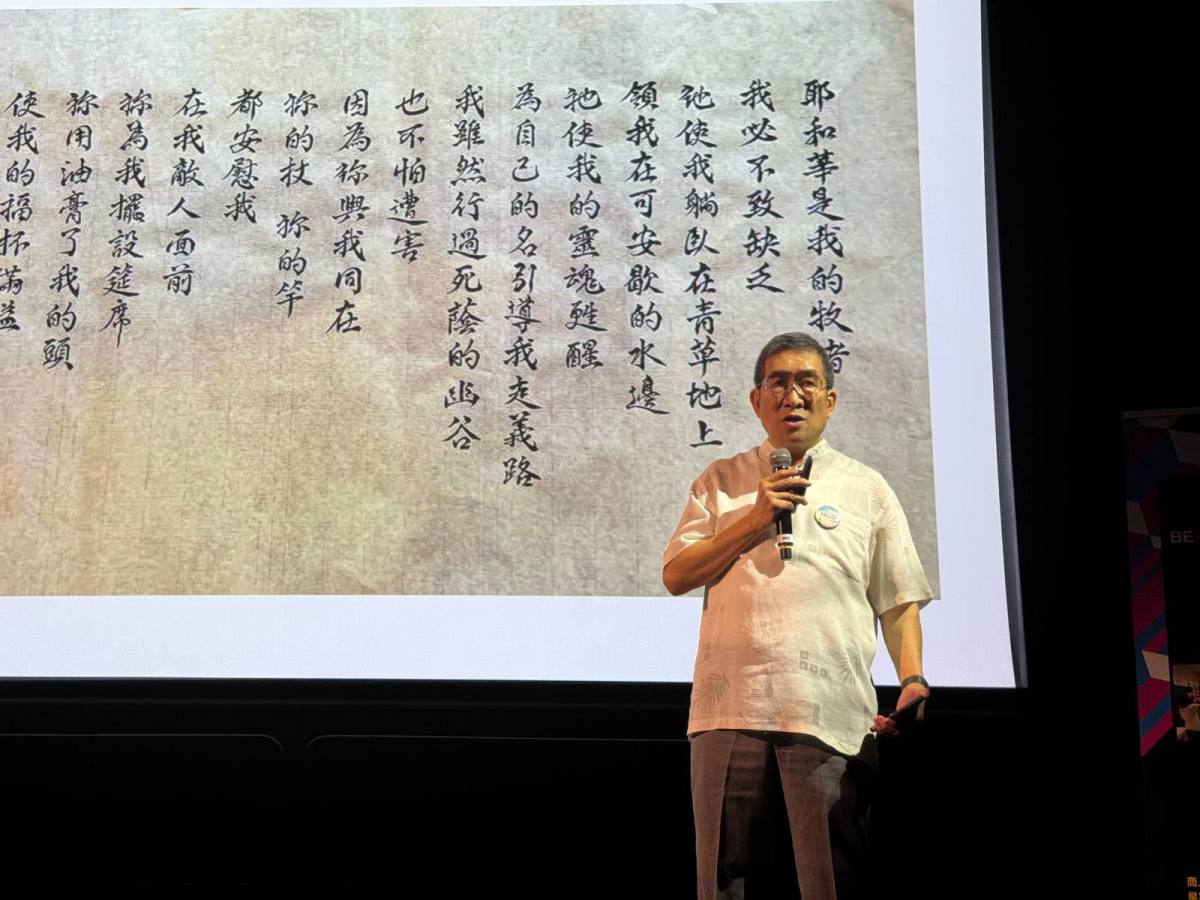 耶和華是我的牧者
我必不致缺乏
祂使我躺臥在青草地上
領我在可安歇的水邊
祂使我的靈魂甦醒
為自己的名引導我走義路
我雖然行過死蔭的幽谷
也不怕遭害
因為祢與我同在
祢的杖 祢的竿
都安慰我
在我敵人面前
祢為我擺設筵席
祢用油膏了我的頭
使我的福杯滿溢
BE
商